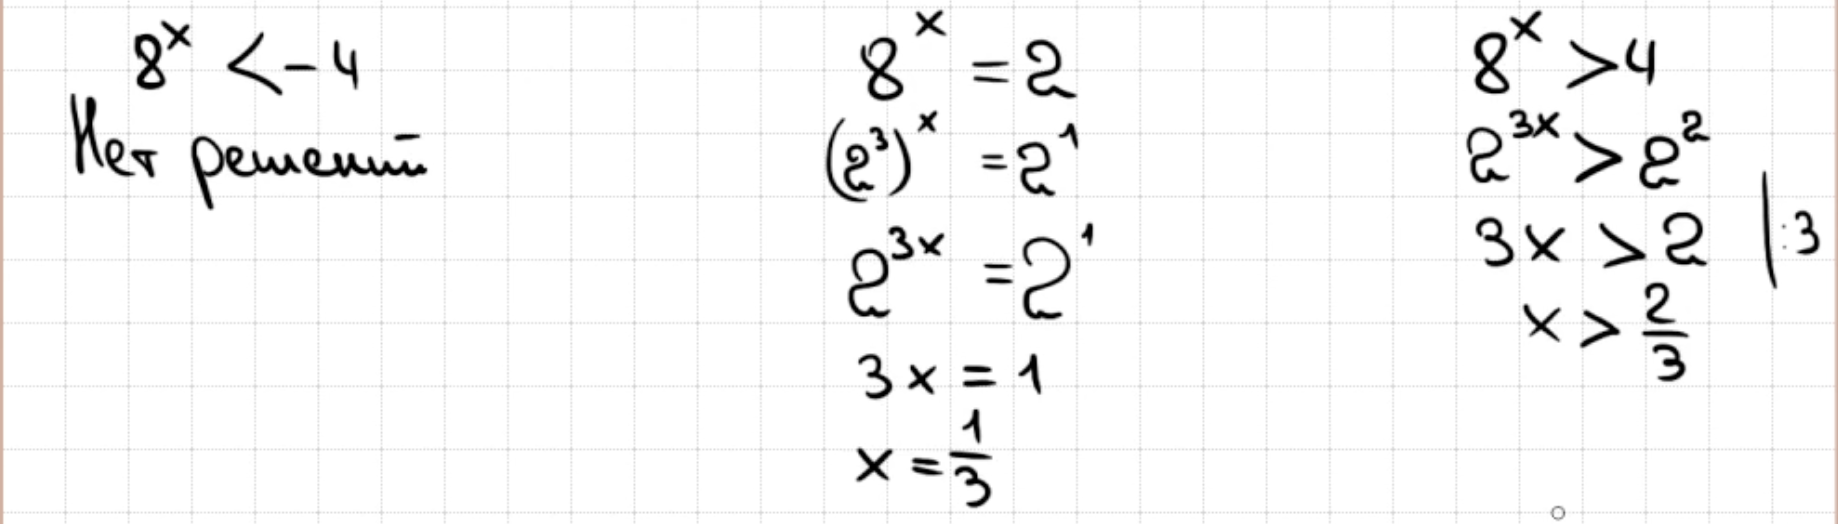 8^x < -4
Нет решений
8^x = 2
(2^3)^x = 2^1
2^{3x} = 2^1
3x = 1
x = \frac{1}{3}
8^x > 4
2^{3x} > 2^2
3x > 2 | :3
x > \frac{2}{3}